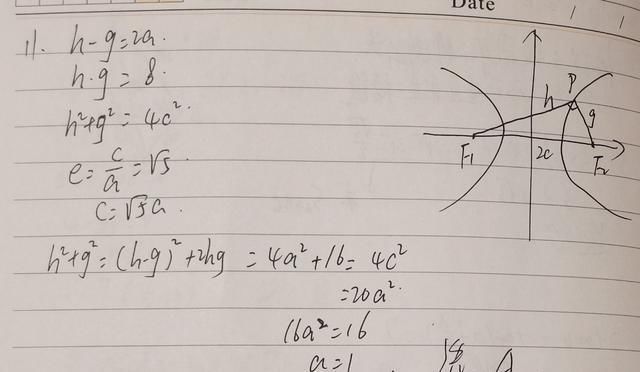 Date
11. h-g=2a.
h·g=8.
h²+g²=4c².
e=c/a=√5.
c=√5a.
h²+g²=(h-g)²+2hg=4a²+16=4c²
=20a².
16a²=16
a=1.
A
P
h
g
F₁
2c
F₂